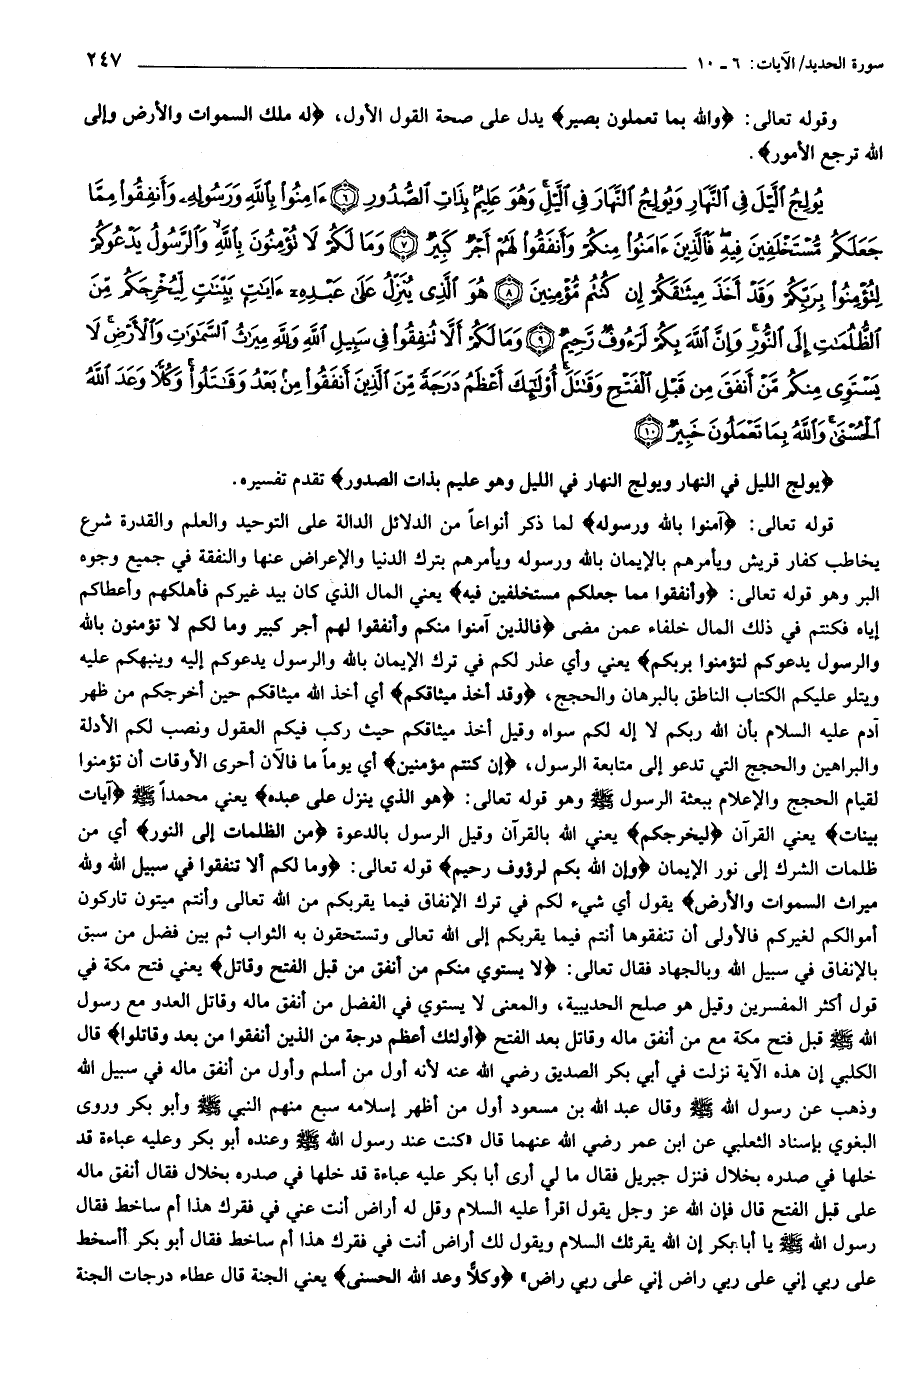 سورة الحديد/ الآيات: ٦ ـ ١٠ ٢٤٧
وقوله تعالى: ﴿والله بما تعملون بصير﴾ يدل على صحة القول الأول، ﴿له ملك السموات والأرض وإلى
الله ترجع الأمور﴾.
يُولِجُ ٱلَّيْلَ فِي ٱلنَّهَارِ وَيُولِجُ ٱلنَّهَارَ فِي ٱلَّيْلِ وَهُوَ عَلِيمٌ بِذَاتِ ٱلصُّدُورِ ﴿٦﴾ ءَامِنُوا۟ بِٱللَّهِ وَرَسُولِهِۦ وَأَنفِقُوا۟ مِمَّا
جَعَلَكُم مُّسْتَخْلَفِينَ فِيهِ فَٱلَّذِينَ ءَامَنُوا۟ مِنكُمْ وَأَنفَقُوا۟ لَهُمْ أَجْرٌ كَبِيرٌ ﴿٧﴾ وَمَا لَكُمْ لَا تُؤْمِنُونَ بِٱللَّهِ وَٱلرَّسُولُ يَدْعُوكُمْ
لِتُؤْمِنُوا۟ بِرَبِّكُمْ وَقَدْ أَخَذَ مِيثَٰقَكُمْ إِن كُنتُم مُّؤْمِنِينَ ﴿٨﴾ هُوَ ٱلَّذِي يُنَزِّلُ عَلَىٰ عَبْدِهِۦ ءَايَٰتٍ بَيِّنَٰتٍ لِّيُخْرِجَكُم مِّنَ
ٱلظُّلُمَٰتِ إِلَى ٱلنُّورِ وَإِنَّ ٱللَّهَ بِكُمْ لَرَءُوفٌ رَّحِيمٌ ﴿٩﴾ وَمَا لَكُمْ أَلَّا تُنفِقُوا۟ فِي سَبِيلِ ٱللَّهِ وَلِلَّهِ مِيرَٰثُ ٱلسَّمَٰوَٰتِ وَٱلْأَرْضِ لَا
يَسْتَوِي مِنكُم مَّنْ أَنفَقَ مِن قَبْلِ ٱلْفَتْحِ وَقَٰتَلَ أُو۟لَٰٓئِكَ أَعْظَمُ دَرَجَةً مِّنَ ٱلَّذِينَ أَنفَقُوا۟ مِنۢ بَعْدُ وَقَٰتَلُوا۟ وَكُلًّا وَعَدَ ٱللَّهُ
ٱلْحُسْنَىٰ وَٱللَّهُ بِمَا تَعْمَلُونَ خَبِيرٌ ﴿١٠﴾
﴿يولج الليل في النهار ويولج النهار في الليل وهو عليم بذات الصدور﴾ تقدم تفسيره.
قوله تعالى: ﴿آمنوا بالله ورسوله﴾ لما ذكر أنواعاً من الدلائل الدالة على التوحيد والعلم والقدرة شرع
يخاطب كفار قريش ويأمرهم بالإيمان بالله ورسوله ويأمرهم بترك الدنيا والإعراض عنها والنفقة في جميع وجوه
البر وهو قوله تعالى: ﴿وأنفقوا مما جعلكم مستخلفين فيه﴾ يعني المال الذي كان بيد غيركم فأهلكهم وأعطاكم
إياه فكنتم في ذلك المال خلفاء عمن مضى ﴿فالذين آمنوا منكم وأنفقوا لهم أجر كبير وما لكم لا تؤمنون بالله
والرسول يدعوكم لتؤمنوا بربكم﴾ يعني وأي عذر لكم في ترك الإيمان بالله والرسول يدعوكم إليه وينبهكم عليه
ويتلو عليكم الكتاب الناطق بالبرهان والحجج، ﴿وقد أخذ ميثاقكم﴾ أي أخذ الله ميثاقكم حين أخرجكم من ظهر
آدم عليه السلام بأن الله ربكم لا إله لكم سواه وقيل أخذ ميثاقكم حيث ركب فيكم العقول ونصب لكم الأدلة
والبراهين والحجج التي تدعو إلى متابعة الرسول، ﴿إن كنتم مؤمنين﴾ أي يوماً ما فالآن أحرى الأوقات أن تؤمنوا
لقيام الحجج والإعلام ببعثة الرسول ﷺ وهو قوله تعالى: ﴿هو الذي ينزل على عبده﴾ يعني محمداً ﷺ ﴿آيات
بينات﴾ يعني القرآن ﴿ليخرجكم﴾ يعني الله بالقرآن وقيل الرسول بالدعوة ﴿من الظلمات إلى النور﴾ أي من
ظلمات الشرك إلى نور الإيمان ﴿وإن الله بكم لرؤوف رحيم﴾ قوله تعالى: ﴿وما لكم ألا تنفقوا في سبيل الله ولله
ميراث السموات والأرض﴾ يقول أي شيء لكم في ترك الإنفاق فيما يقربكم من الله تعالى وأنتم ميتون تاركون
أموالكم لغيركم فالأولى أن تنفقوها أنتم فيما يقربكم إلى الله تعالى وتستحقون به الثواب ثم بين فضل من سبق
بالإنفاق في سبيل الله وبالجهاد فقال تعالى: ﴿لا يستوي منكم من أنفق من قبل الفتح وقاتل﴾ يعني فتح مكة في
قول أكثر المفسرين وقيل هو صلح الحديبية، والمعنى لا يستوي في الفضل من أنفق ماله وقاتل العدو مع رسول
الله ﷺ قبل فتح مكة مع من أنفق ماله وقاتل بعد الفتح ﴿أولئك أعظم درجة من الذين أنفقوا من بعد وقاتلوا﴾ قال
الكلبي إن هذه الآية نزلت في أبي بكر الصديق رضي الله عنه لأنه أول من أسلم وأول من أنفق ماله في سبيل الله
وذهب عن رسول الله ﷺ وقال عبد الله بن مسعود أول من أظهر إسلامه سبع منهم النبي ﷺ وأبو بكر وروى
البغوي بإسناد الثعلبي عن ابن عمر رضي الله عنهما قال «كنت عند رسول الله ﷺ وعنده أبو بكر وعليه عباءة قد
خلها في صدره بخلال فنزل جبريل فقال ما لي أرى أبا بكر عليه عباءة قد خلها في صدره بخلال فقال أنفق ماله
على قبل الفتح قال فإن الله عز وجل يقول اقرأ عليه السلام وقل له أراض أنت عني في فقرك هذا أم ساخط فقال
رسول الله ﷺ يا أبا بكر إن الله يقرئك السلام ويقول لك أراض أنت في فقرك هذا أم ساخط فقال أبو بكر أأسخط
على ربي إني على ربي راض إني على ربي راض» ﴿وكلًّا وعد الله الحسنى﴾ يعني الجنة قال عطاء درجات الجنة